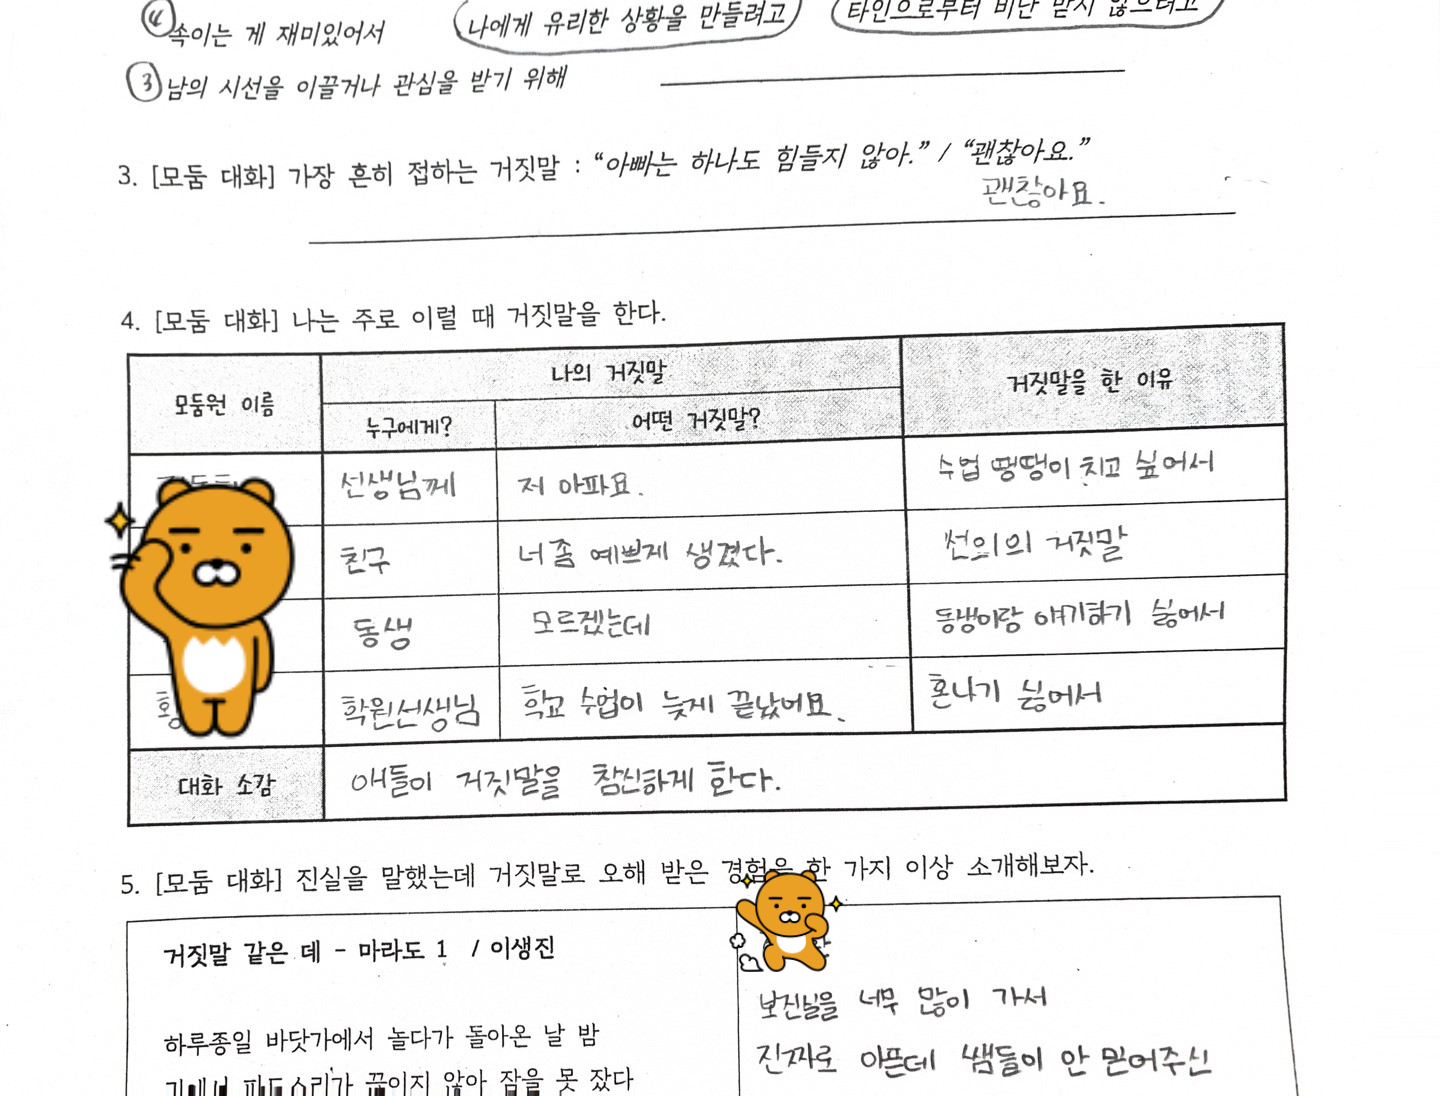 ④ 속이는 게 재미있어서 나에게 유리한 상황을 만들려고 타인으로부터 비난 받지 않으려고
③ 남의 시선을 이끌거나 관심을 받기 위해
3. [모둠 대화] 가장 흔히 접하는 거짓말 : “아빠는 하나도 힘들지 않아.” / “괜찮아요.”
괜찮아요.
4. [모둠 대화] 나는 주로 이럴 때 거짓말을 한다.
모둠원 이름 나의 거짓말 거짓말을 한 이유
누구에게? 어떤 거짓말?
선생님께 저 아파요. 수업 땡땡이 치고 싶어서
친구 너 좀 예쁘게 생겼다. 선의의 거짓말
동생 모르겠는데 동생이랑 얘기하기 싫어서
학원선생님 학교 수업이 늦게 끝났어요. 혼나기 싫어서
대화 소감 애들이 거짓말을 참신하게 한다.
5. [모둠 대화] 진실을 말했는데 거짓말로 오해 받은 경험을 한 가지 이상 소개해보자.
거짓말 같은 데 - 마라도 1 / 이생진
하루종일 바닷가에서 놀다가 돌아온 날 밤
파도소리가 끊이지 않아 잠을 못 잤다
보진실을 너무 많이 가서
진짜로 아픈데 쌤들이 안 믿어주신